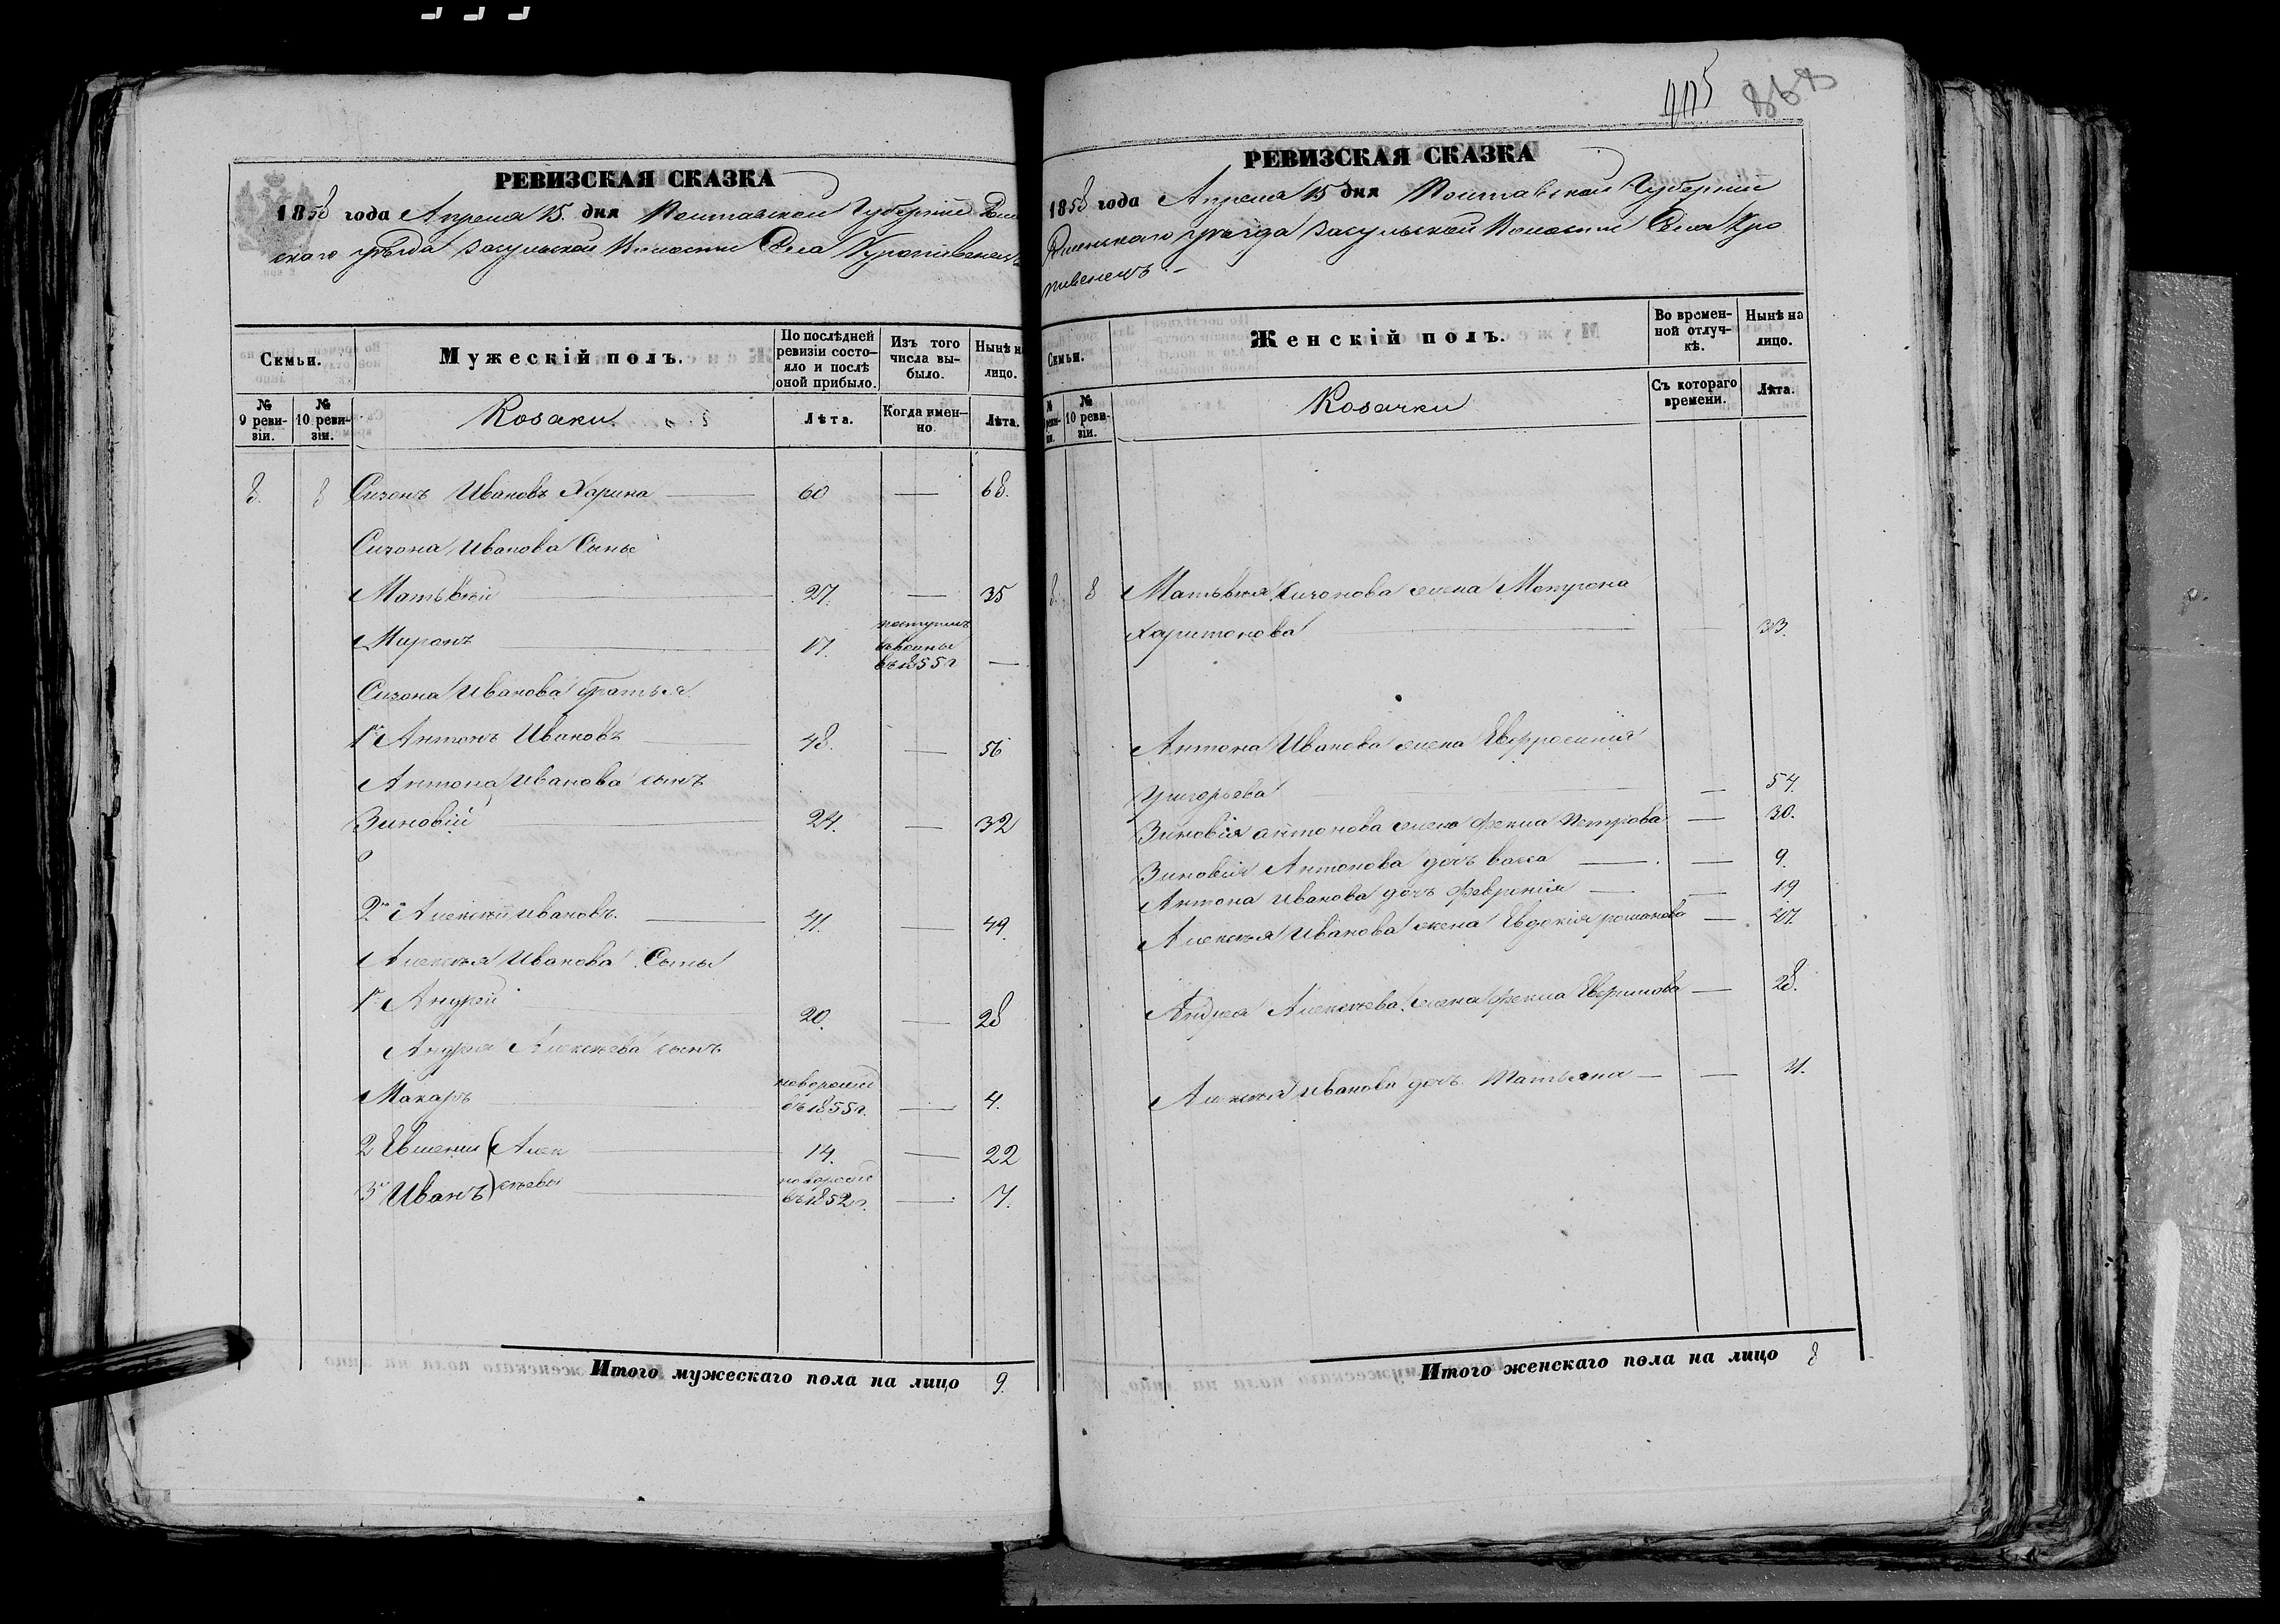 РЕВИЗСКАЯ СКАЗКА
1858 года Апреля 15 дня Полтавской Губернiи Роменскаго уѣзда Засульской Волости Села Кропивенецъ
Семьи.
Мужескiй полъ.
По послѣдней ревизiи состояло и послѣ оной прибыло.
Изъ того числа выбыло.
Нынѣ на лицо.
№ 9 ревизiи.
№ 10 ревизiи.
Козаки
Лѣта.
Когда именно.
Лѣта.
8. 8 Сизонъ Ивановъ Харина 60 — 68.
Сизона Иванова Сыны
Матьвѣй 27. — 35
Миронъ 17. поступилъ въ 1855 г —
Сизона Иванова братья
1й Антонъ Ивановъ 48. — 56
Антона Иванова сынъ
Зиновiй 24. — 32
2й Алексѣй Ивановъ. 41. — 49.
Алексѣя Иванова Сыны
1й Андрей 20. — 28
Андрея Алексѣева сынъ
Макаръ новорожд въ 1855 г. — 4.
2 Евменiй (Алек 14. — 22
3й Иванъ) сѣевы новорожд въ 1852 г. — 7.
Итого мужескаго пола на лицо 9.
905 868
РЕВИЗСКАЯ СКАЗКА
1858 года Апреля 15 дня Полтавской Губернiи
Роменскаго уѣзда Засульской Волости Села Кро
пивенецъ. –
Семьи.
Женскiй полъ.
Во временной отлучкѣ.
Нынѣ на лицо.
№ 10 ревизiи.
Козачки
Съ котораго времени.
Лѣта.
8. 8 Матьвѣя Сизонова жена Мотрона
Харитонова — 33.
Антона Иванова жена Евфросинiя
Григорьева — 54.
Зиновiя Антонова жена Фекла Петрова — 30.
Зиновiя Антонова дочь Васса — 9.
Антона Иванова дочь Февронiя — 19
Алексѣя Иванова жена Евдокiя Романова — 47.
Андрея Алексѣева жена Фекла Ефимова — 28.
Алексѣя Иванова дочь Татьяна — 11.
Итого женскаго пола на лицо 8